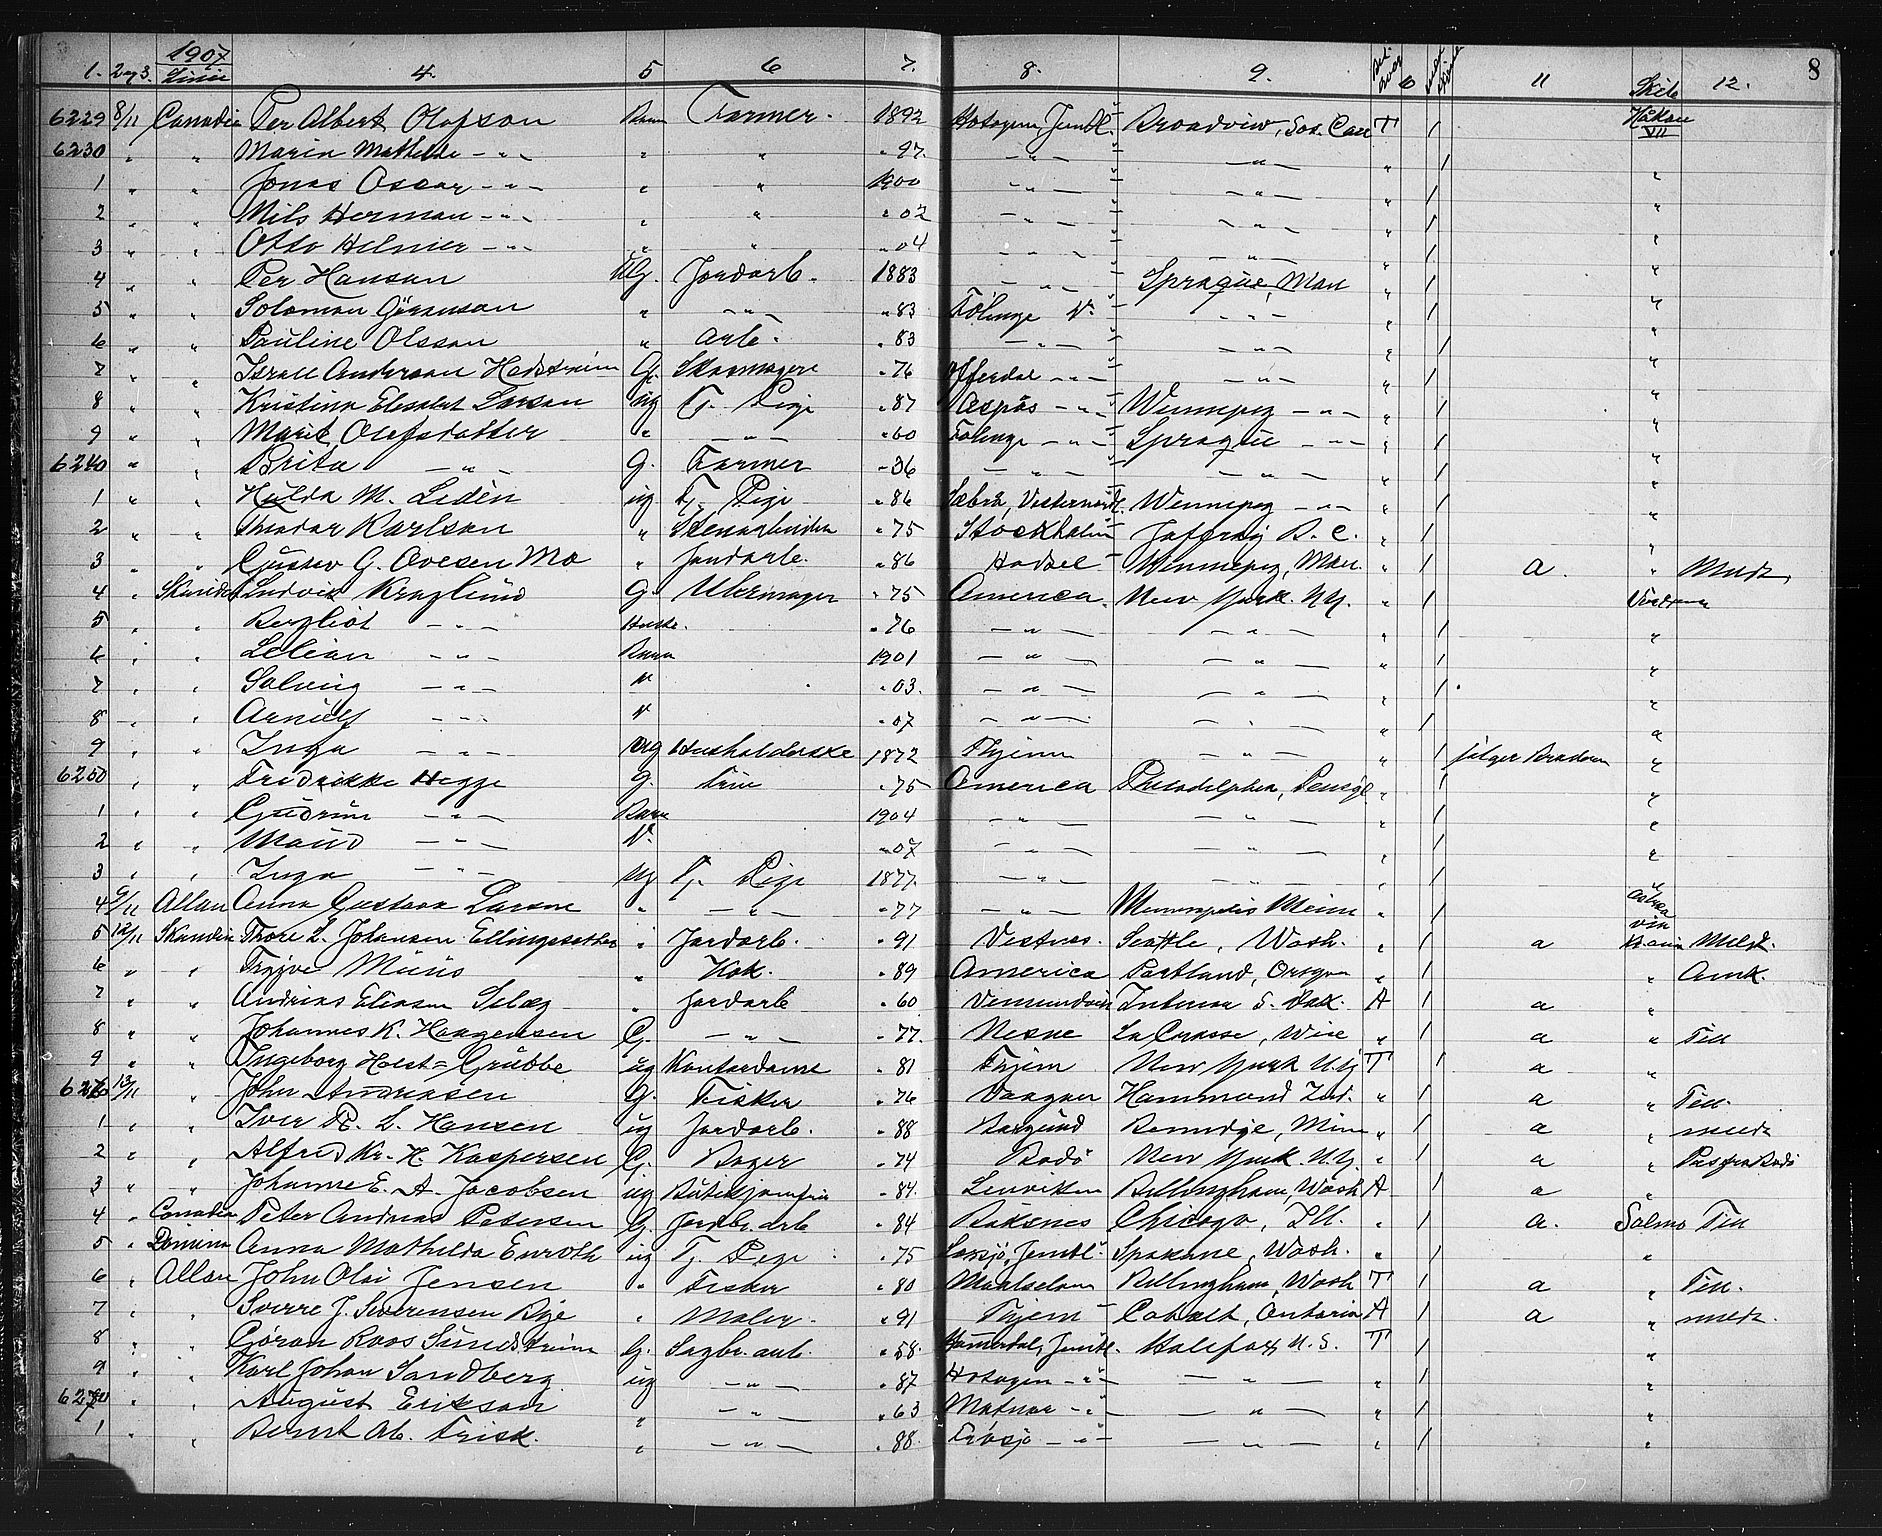 1907 8
1. 2 og 3. Linie 4. 5 6 7. 8. 9. 11 Skib 12.
6229 8/11 Canadie Per Albert Olofson Barn Farmer. 1892 Hotagen Jemtl. Broadview, Sas. Can T 1 Håkon VII
6230 " " Maria Mathilde - " - " " " 97. - " - - " - " 1 "
1 " " Jonas Oscar - " - " " 1900 - " - - " - " 1 "
2 " " Nils Herman - " - " " " 02 - " - - " - " 1 "
3 " " Otto Helmer - " - " " " 04 - " - - " - " 1 "
4 " " Per Hanson Ug. Jordarb. 1883 - " - Sprague, Man " 1 "
5 " " Solomon Göranson " - " - " 83 Fölinge " - " - " 1 "
6 " " Pauline Olsson " Arb. " 83 - " - - " - " 1 "
7 " " Israel Anderson Hedström G. Skomager " 76 Offerdal - " - - " - " 1 "
8 " " Kristina Elisabet Larson ug Tj. Pige " 87 Aspås - " - Winnepeg - " - " 1 "
9 " " Marit Olofsdotter " - " - " 60 Fölinge - " - Sprague - " - " 1 "
6240 " " Brita - " - G. Farmer " 36 - " - - " - " 1 "
1 " " Hulda M. Lidén ug. Tj. Pige " 86 Sæbrå, Vesternordl. Winnepeg - " - " 1 "
2 " " Theodor Karlson " Stenarbeider " 75 Stockholm Jaffray B. C. " 1 "
3 " " Gustav G. Ovesen Mo " Jordarb. " 86 Hadsel Winnepeg, Man. " 1 a. " Meldt
4 " Skandin Ludvik Kraglund G. Uhrmager " 75 America New York. N.Y. " 1
5 " " Bergliot - " - Hustr. " 76 - " - - " - " 1 "
6 " " Lilian - " - Barn 1901 - " - - " - " 1 "
7 " " Solveig - " - " " 03. - " - - " - " 1 "
8 " " Arnulf - " - " " 07 - " - - " - " 1 "
9 " " Inga - " - ug Husholderske 1872 Thjem - " - " 1 følger Broderen "
6250 " " Fredrikke Hegge G. Frue " 75 America Philadelphia, Pensyl " 1 "
1 " " Gudrun - " - Barn 1904 - " - - " - " 1 "
2 " " Maud - " - " " 07 - " - - " - " 1 "
3 " " Inga - " - ug Tj. Pige 1877. - " - - " - " 1 "
4 9/11 Allan Anna Gustava Larson " - " - " 77 - " - Minneapolis Minn " 1
5 12/11 Skandin Thore L. Johansen Ellingsæther " Jordarb. " 91 Vestnes. Seattle, Wash. " 1 a Meldt.
6 " " Trygve Muus " Kok. " 89 America Portland, Oregon " 1 " Amk.
7 " " Andrias Eliasen Selæg " Jordarb " 60 Vemundvik Interior S. Dak. A 1 a "
8 " " Johannes K. Haagensen G. - " - " 77. Nesne La Crosse, Wise " 1 a " Till
9 " " Ingeborg Holst=Grubbe ug Kontordame " 81 Thjem New York N.Y T 1 a "
6260 13/11 " John Andreasen G. Fisker " 76 Vaagan Hammond Ind. " 1 a " Till.
1 " " Iver R. L. Hansen ug Jordarb. " 88 Borgund Bemidje, Minn " 1 a " meldt
2 " " Alfred Kr. H. Kaspersen G. Bager " 74 Bodö New York. N.Y. " 1 a " Pas fra Bodö
3 " " Johanne E. A. Jacobsen ug Butikjomfru " 84. Lenviken Bellingham, Wash A 1 a "
4 " Canadia Peter Andreas Petersen G. Jordbr. arb " 84 Baksnes Chicago, Ill. " 1 a. Salmo Till
5 " Dominion Anna Mathilda Enroth ug Tj. Pige " 75 Jemtl. Spokane, Wash. " 1 "
6 " Allan John Olai Jensen " Fisker " 80 Maalselven Bellingham, Wash T 1 a " Till.
7 " " Sverre J. Severensen Rye " Maler. " 91 Thjem Cobalt, Ontario A 1 a " meldt.
8 " " Göran Roos Sundström G. Sagbr. arb. " 58. Hammerdal, Jemtl. Halifax N. S. T 1 "
9 " " Karl Johan Sandberg ug - " - " 87 Hotagen - " - - " - " 1 "
6270 " " August Erikson " - " - " 63 - " - - " - " 1 "
1 " " Bernt Ab. Frisk. " - " - " 88. - " - - " - " 1 "